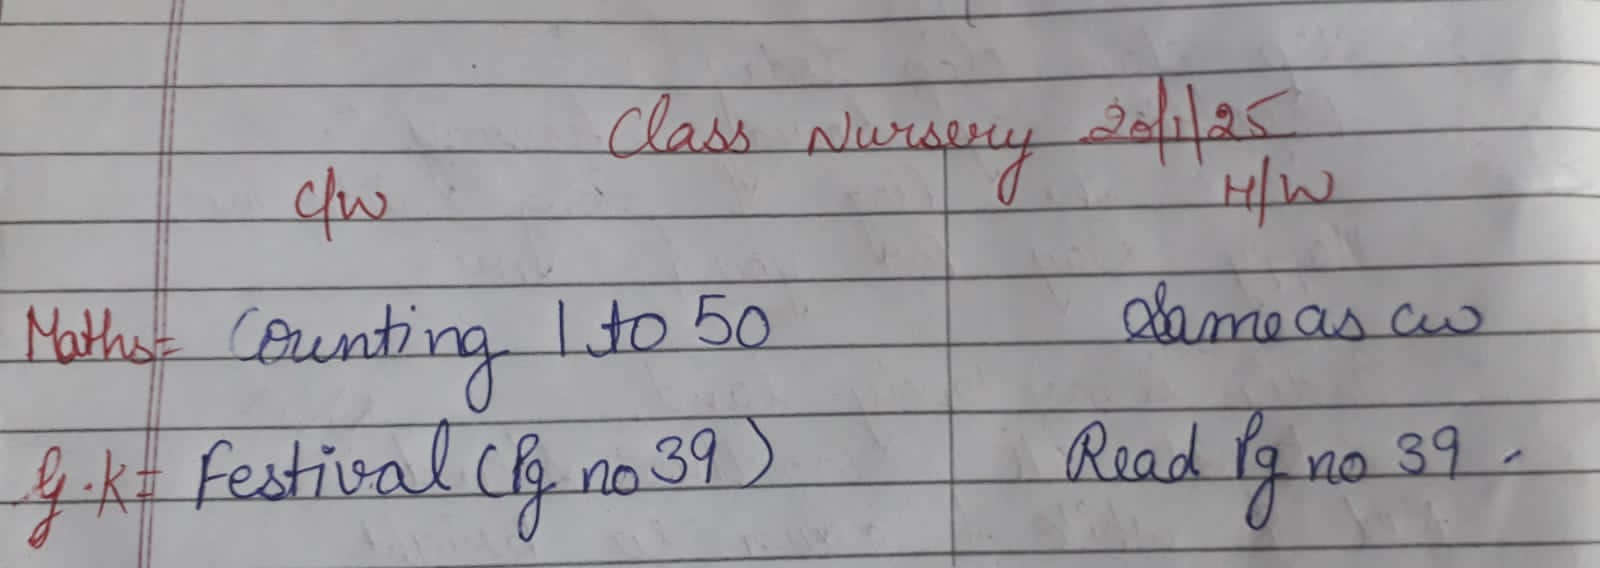 Class Nursery 20/1/25
C/W H/W
Maths= Counting 1 to 50 Same as cw
G.K= Festival (Pg no 39) Read Pg no 39 -